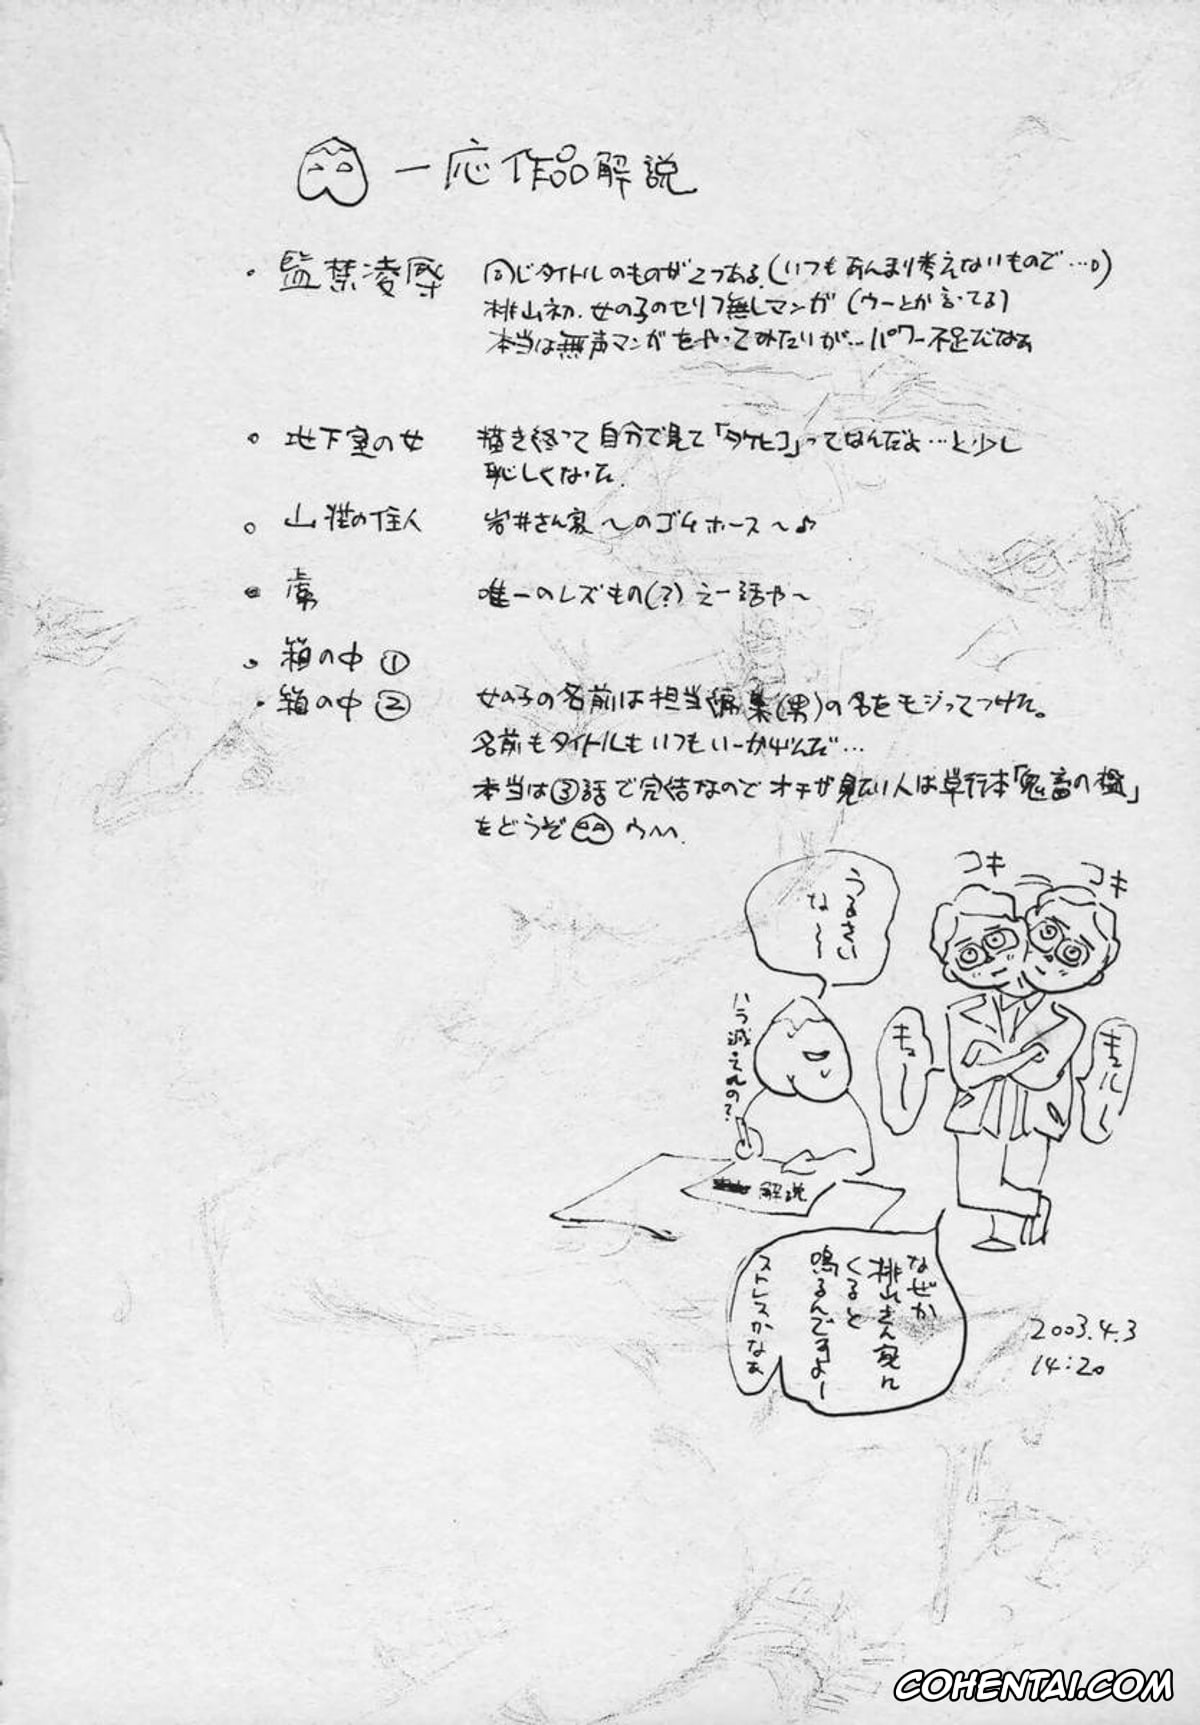 一応作品解説
・監禁凌辱 同じタイトルのものが2つある。(いつもあんまり考えないもので…。)
桃山初、女の子のセリフ無しマンガ(ウーとか言ってる)
本当は無声マンガをやってみたいが…パワー不足だなぁ
。地下室の女 描き終って自分で見て「タケヒコ」ってなんだよ…と少し
恥しくなった。
。山荘の住人 岩井さん家〜のゴムホース〜♪
・虜 唯一のレズもの(?)えー話や〜
・箱の中①
・箱の中② 女の子の名前は担当編集(男)の名をモジってつけた。
名前もタイトルもいつもいーかげんだ…
本当は③話で完結なのでオチが見たい人は単行本「鬼畜の檻」
をどうぞ ウハハ
コキ
コキ
うるさい
な〜〜
ハラ減ってんの?
キュー
キュルルー
解説
なぜか
桃山さん家に
くると
鳴るんですよー
ストレスかなぁ
2003.4.3
14:20
COHENTAI.COM